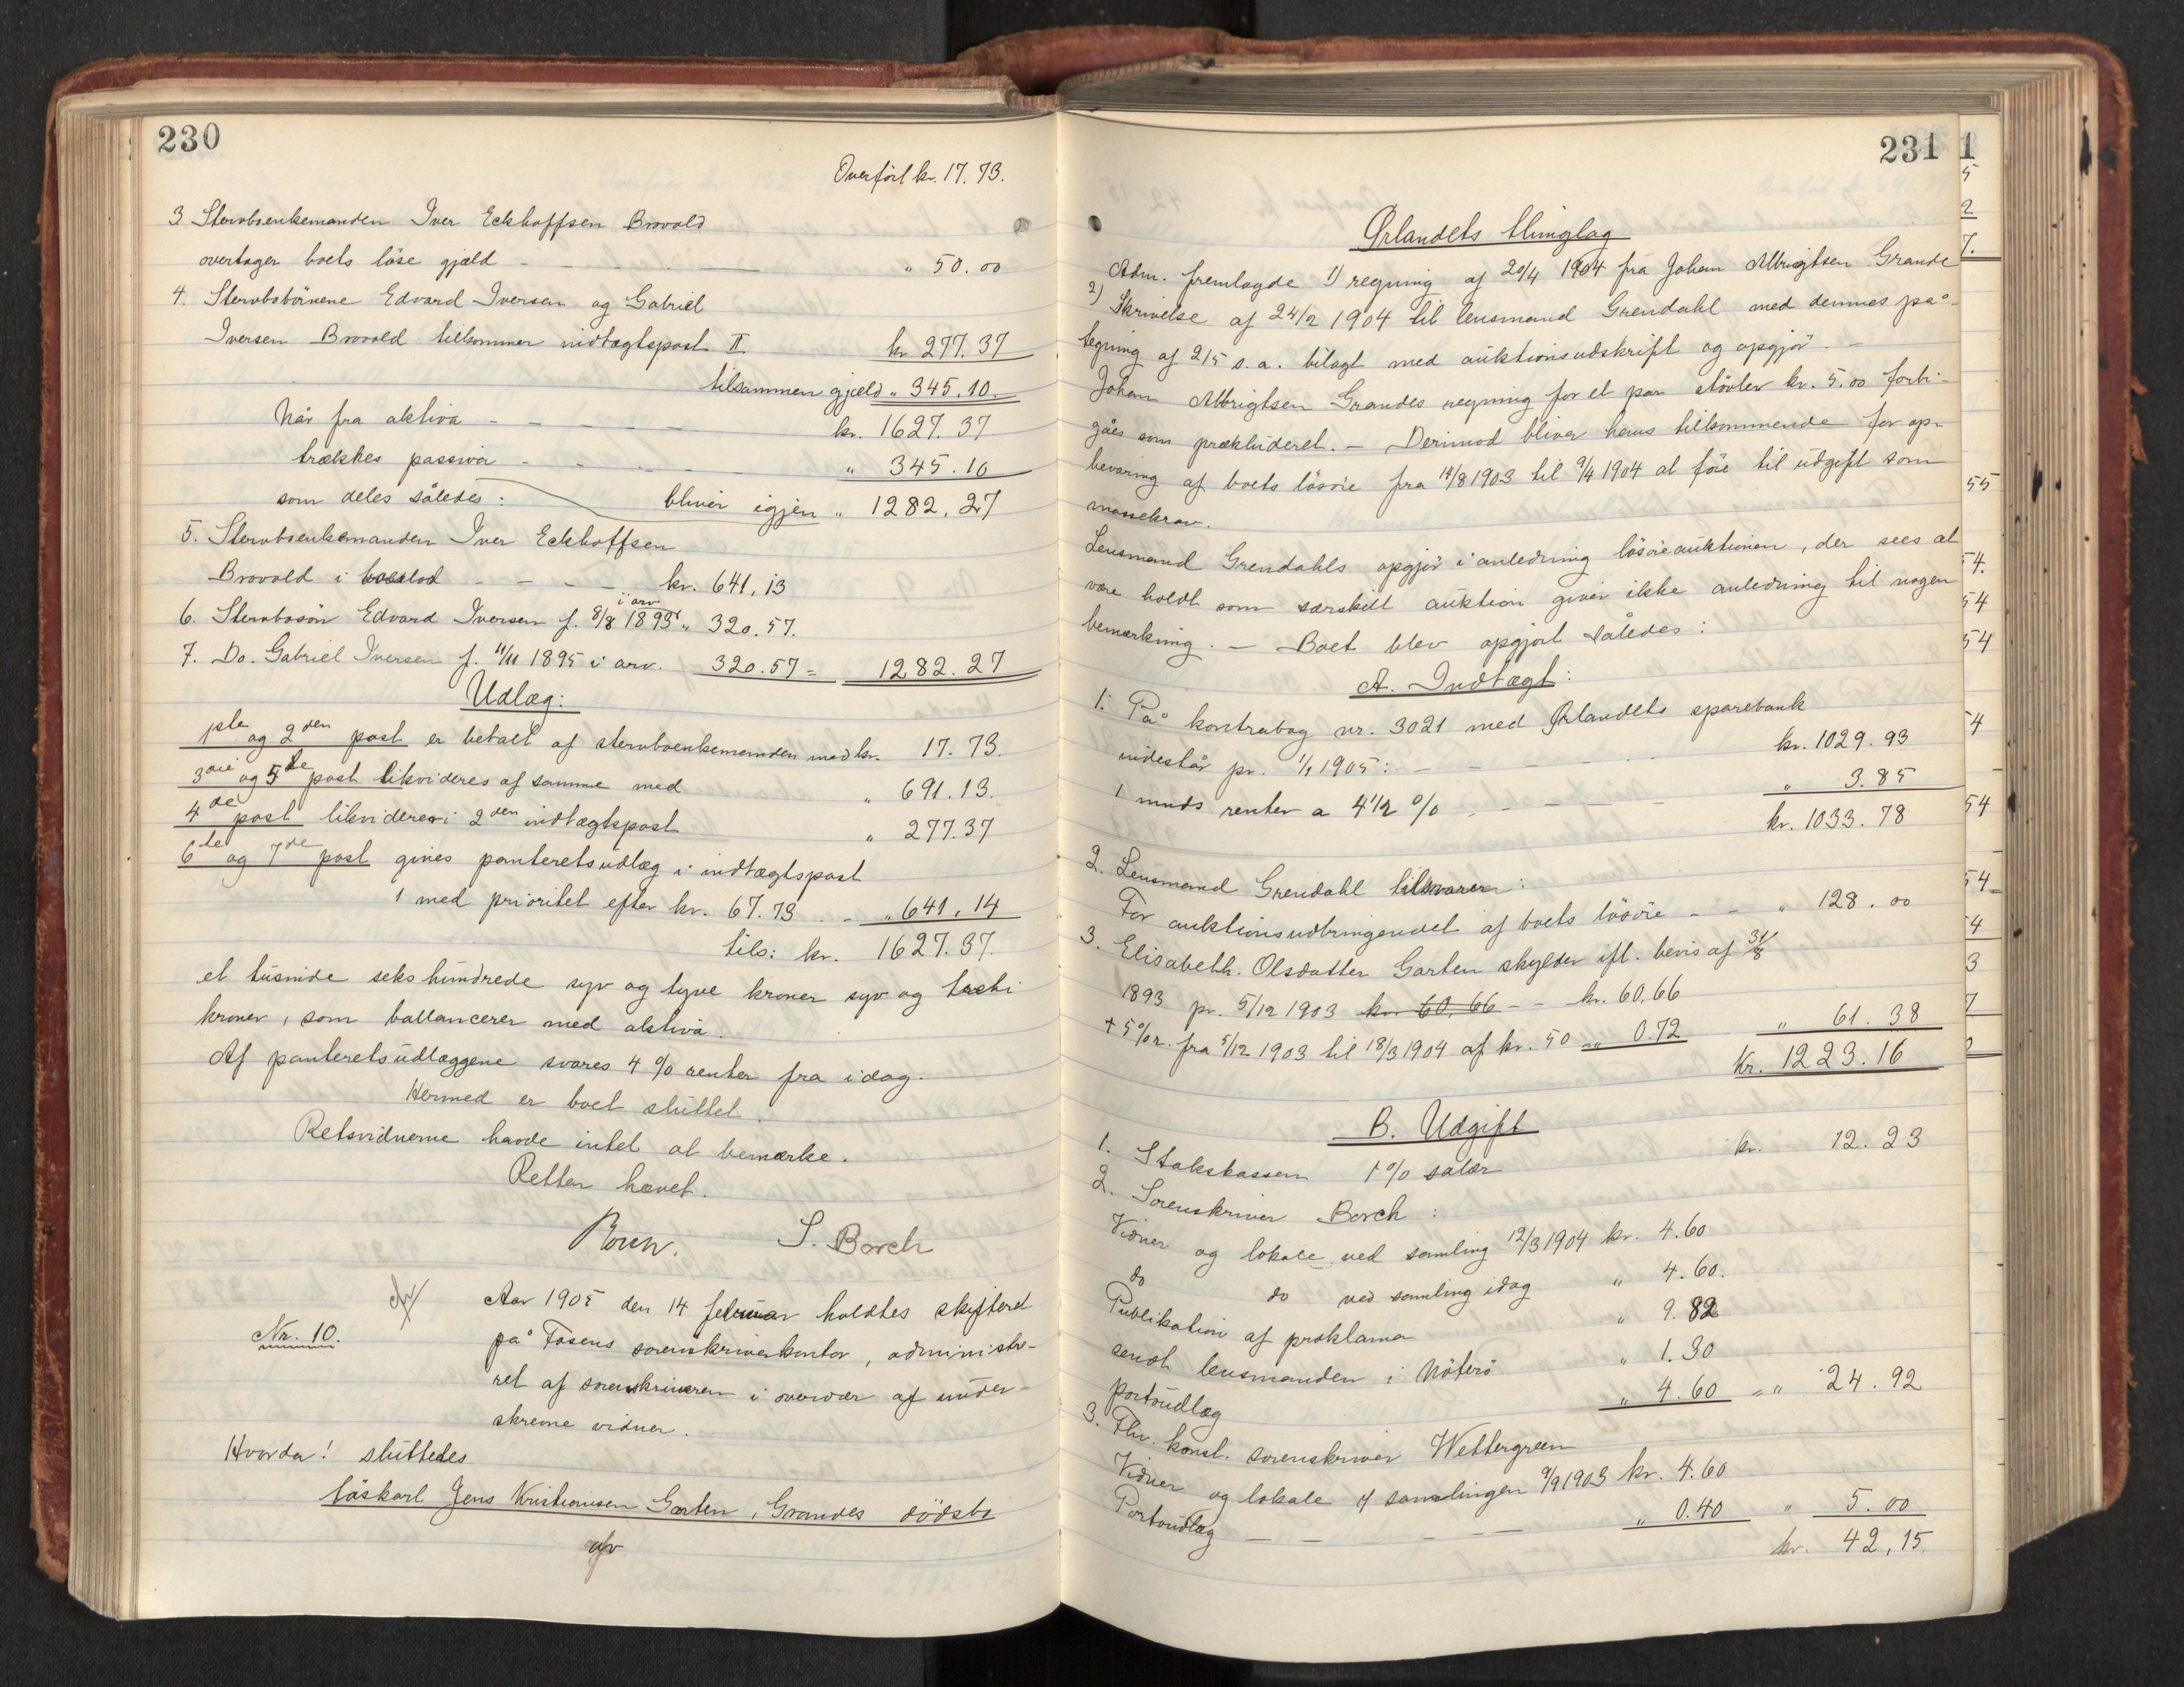 230
Overført kr. 17.73.
3 Stervboenkemanden Iver Eckhoffsen Brovold
overtager boets løse gjæld - - - " 50.00
4. Stervbobørnene Edvard Iversen og Gabriel
Iversen Brovold tilkommer indtægtspost II kr. 277.37
tilsammen gjæld " 345.10.
Når fra aktiva - - - - - kr. 1627.37
trækkes passiva - - - - " 345.10
som deles således: bliver igjen " 1282.27
5. Stervboenkemanden Iver Eckhoffsen
Brovold i boeslod - - - - kr. 641,13
6. Stervbosøn Edvard Iversen f. 8/8 1893 i arv " 320.57.
7. Do. Gabriel Iversen f. 11/11 1895 i arv. 320.57 = 1282.27
Udlæg:
1ste og 2den post er betalt af stervboenkemanden med kr. 17.73.
3die og 5te post likvideres af samme med " 691.13.
4de post likvideres i 2den indtægtspost " 277.37
6te og 7de post gives panteretsudlæg i indtægtspost
1 med prioritet efter kr. 67.73 - - " 641.14
tils: kr. 1627.37.
et tusinde seks hundrede syv og tyve kroner syv og tredi
kroner, som ballancerer med aktiva.
Af panteretsudlæggene svares 4 % renter fra idag.
Hermed er boet sluttet.
Retsvidnerne havde intet at bemærke.
Retten hævet.
S. Borch
Nr. 10.
Aar 1905 den 14 februar holdtes skifteret
på Fosens sorenskriverkontor, administre-
ret af sorenskriveren i overvær af under-
skrevne vidner.
Hvorda! sluttedes
løskarl Jens Kristiansen Garten, Grandes dödsbo
af
231
Ørlandets thinglag
Adm. fremlagde 1) regning af 20/4 1904 fra Johan Albrigtsen Grande
2) Skrivelse af 24/2 1904 til lensmand Grendahl med dennes på-
tegning af 2/5 s.a. bilagt med auktionsudskrift og opgjør. -
Johan Albrigtsen Grandes regning for et par støvler kr. 5.00 forbi-
gåes som prækluderet. - Derimod bliver hans tilkommende for op-
bevaring af boets løsøre fra 14/8 1903 til 9/4 1904 at føre til udgift som
massekrav.
Lensmand Grendahls opgjør i anledning løsøreauktionen, der sees at
være holdt som særskilt auktion giver ikke anledning til nogen
bemærkning. - Boet blev opgjort således:
A. Indtægt:
1. På kontrabog nr. 3021 med Ørlandets sparebank
indestår pr. 1/1 1905: - - - kr. 1029.93
1 mnds renter a 4 1/2 % - - - - " 3.85
kr. 1033.78
2. Lensmand Grendahl tilsvarer:
For auktionsudbringendet af boets løsøre - - " 128.00
3. Elisabeth. Olsdatter Garten skylder ifl. bevis af 31/8
1893 pr. 5/12 1903 kr 60.66 - - kr. 60,66
+ 5% r. fra 5/12 1903 til 18/3 1904 af kr. 50 - " 0.72 " 61.38
Kr. 1223.16
B. Udgift
1. Statskassen 1 % salær kr. 12.23
2. Sorenskriver Borch:
Vidner og lokale ved samling 12/3 1904 kr. 4.60
do do ved samling idag " 4.60.
Publikation af proklama " 9.82
sendt lensmanden i Nøterø " 1.30
portoudlæg " 4.60 = " 24.92
3. Fhv. konst. sorenskriver Wettergreen
Vidner og lokale v/ samlingen 9/9 1903 kr. 4.60
Portoudlæg - - - - " 0.40 " 5.00
kr. 42,15